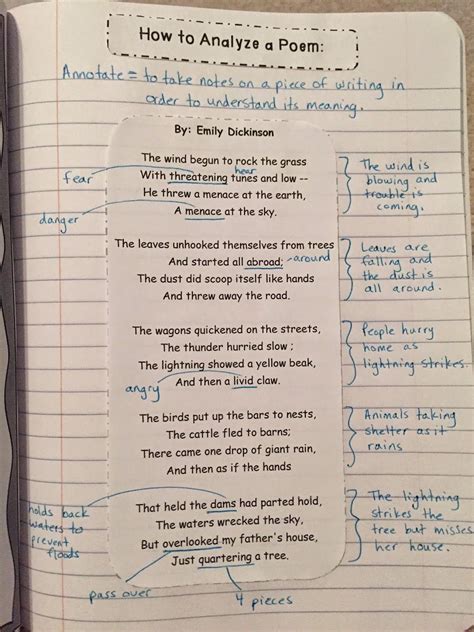 How to Analyze a Poem:
Annotate = to take notes on a piece of writing in
order to understand its meaning.
By: Emily Dickinson
The wind begun to rock the grass
hear
fear
With threatening tunes and low --
He threw a menace at the earth,
danger
A menace at the sky.
The wind is
blowing and
trouble is
coming.
The leaves unhooked themselves from trees
And started all abroad; -around
The dust did scoop itself like hands
And threw away the road.
Leaves are
falling and
the dust is
all around.
The wagons quickened on the streets,
The thunder hurried slow ;
The lightning showed a yellow beak,
angry
And then a livid claw.
People hurry
home as
lightning strikes.
The birds put up the bars to nests,
The cattle fled to barns;
There came one drop of giant rain,
And then as if the hands
Animals taking
shelter as it
rains
That held the dams had parted hold,
The waters wrecked the sky,
But overlooked my father's house,
Just quartering a tree.
holds back
waters to
prevent
floods
The lightning
strikes the
tree but misses
her house.
pass over
4 pieces